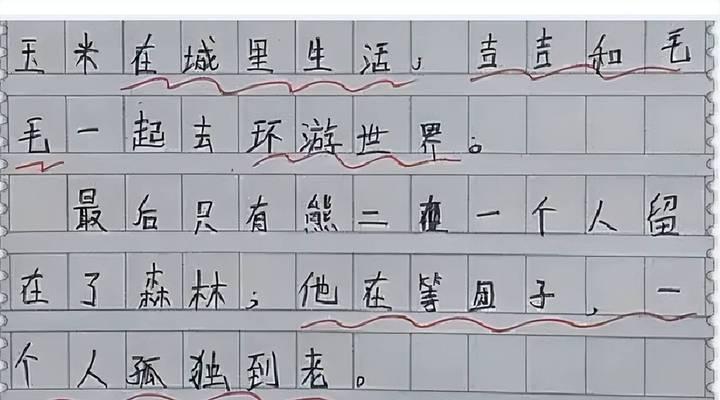 玉米在城里生活,吉吉和毛
毛一起去环游世界。
最后只有熊二一个人留
在了森林;他在等团子,一
个人孤独到老。